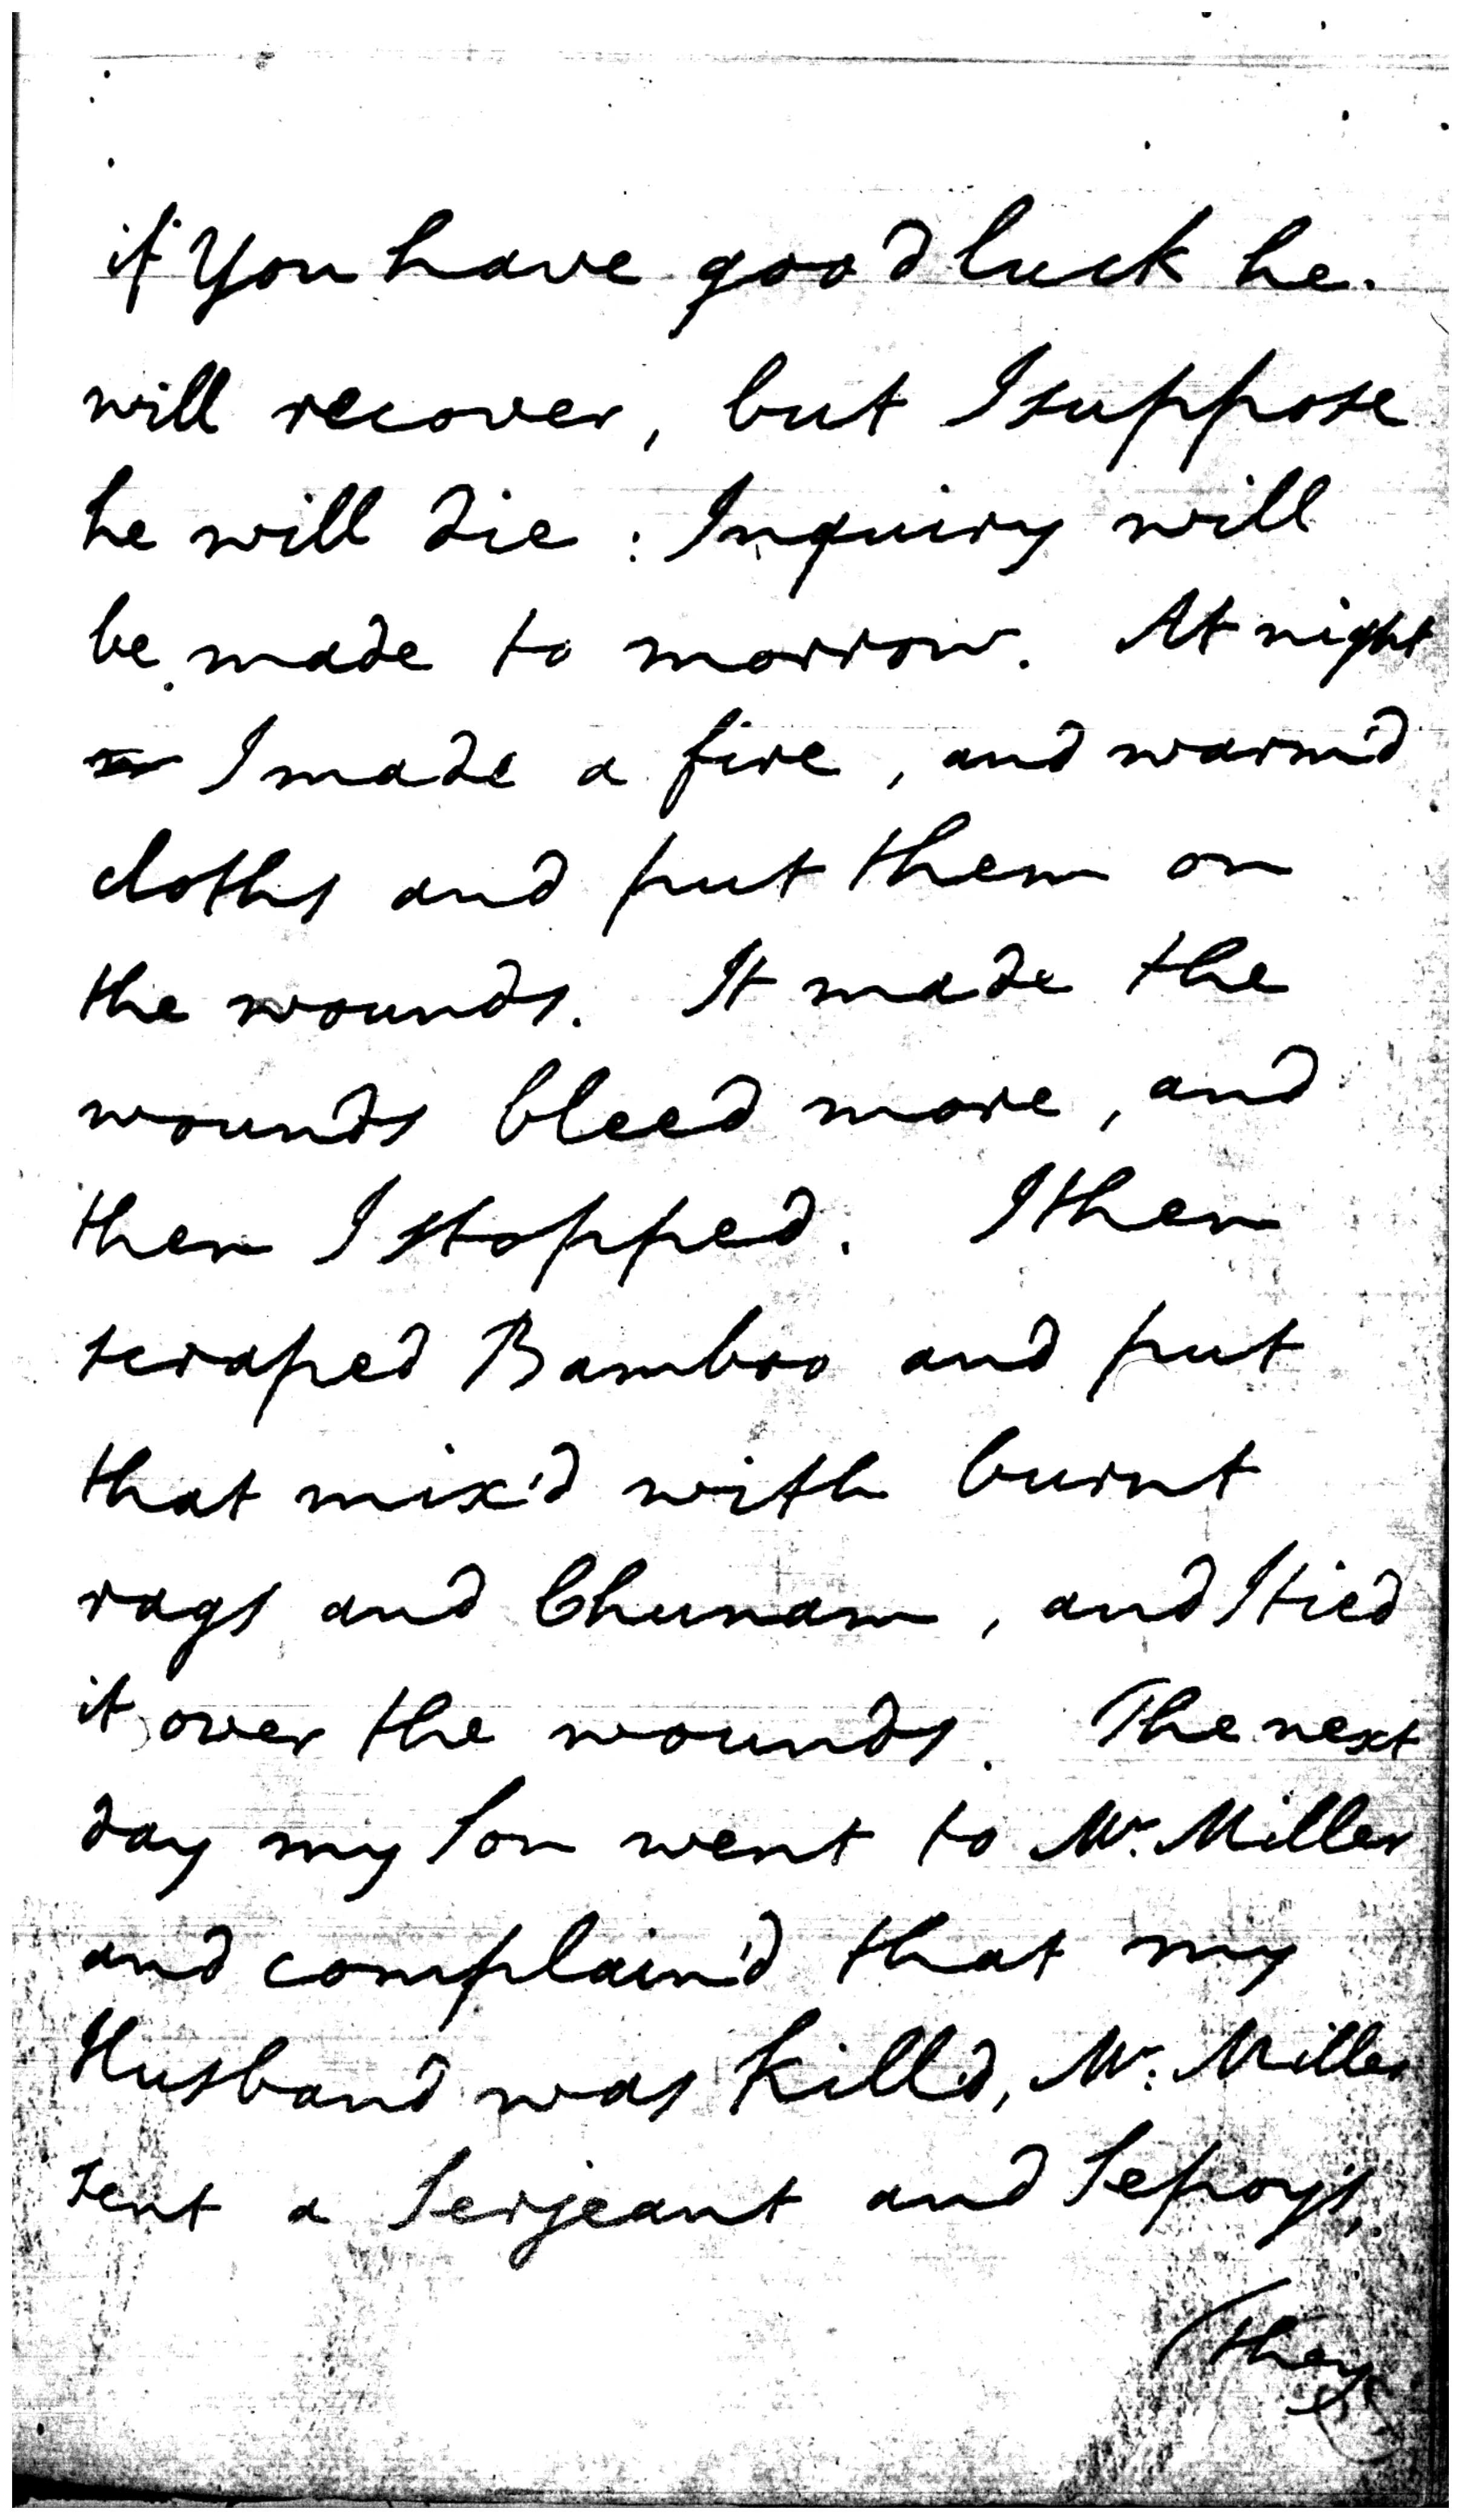 if You have good luck he
will recover, but I suppose
he will die : Inquiry will
be made to morrow. At night
I made a fire, and warm'd
cloths and put them on
the wounds. It made the
wounds bleed more, and
then I stopped. I then
scraped Bamboo and put
that mix'd with burnt
rags and Chunam, and I tied
it over the wounds. The next
day my Son went to Mr. Miller
and complain'd that my
Husband was kill'd, Mr. Miller
sent a Serjeant and Sepoys,
They